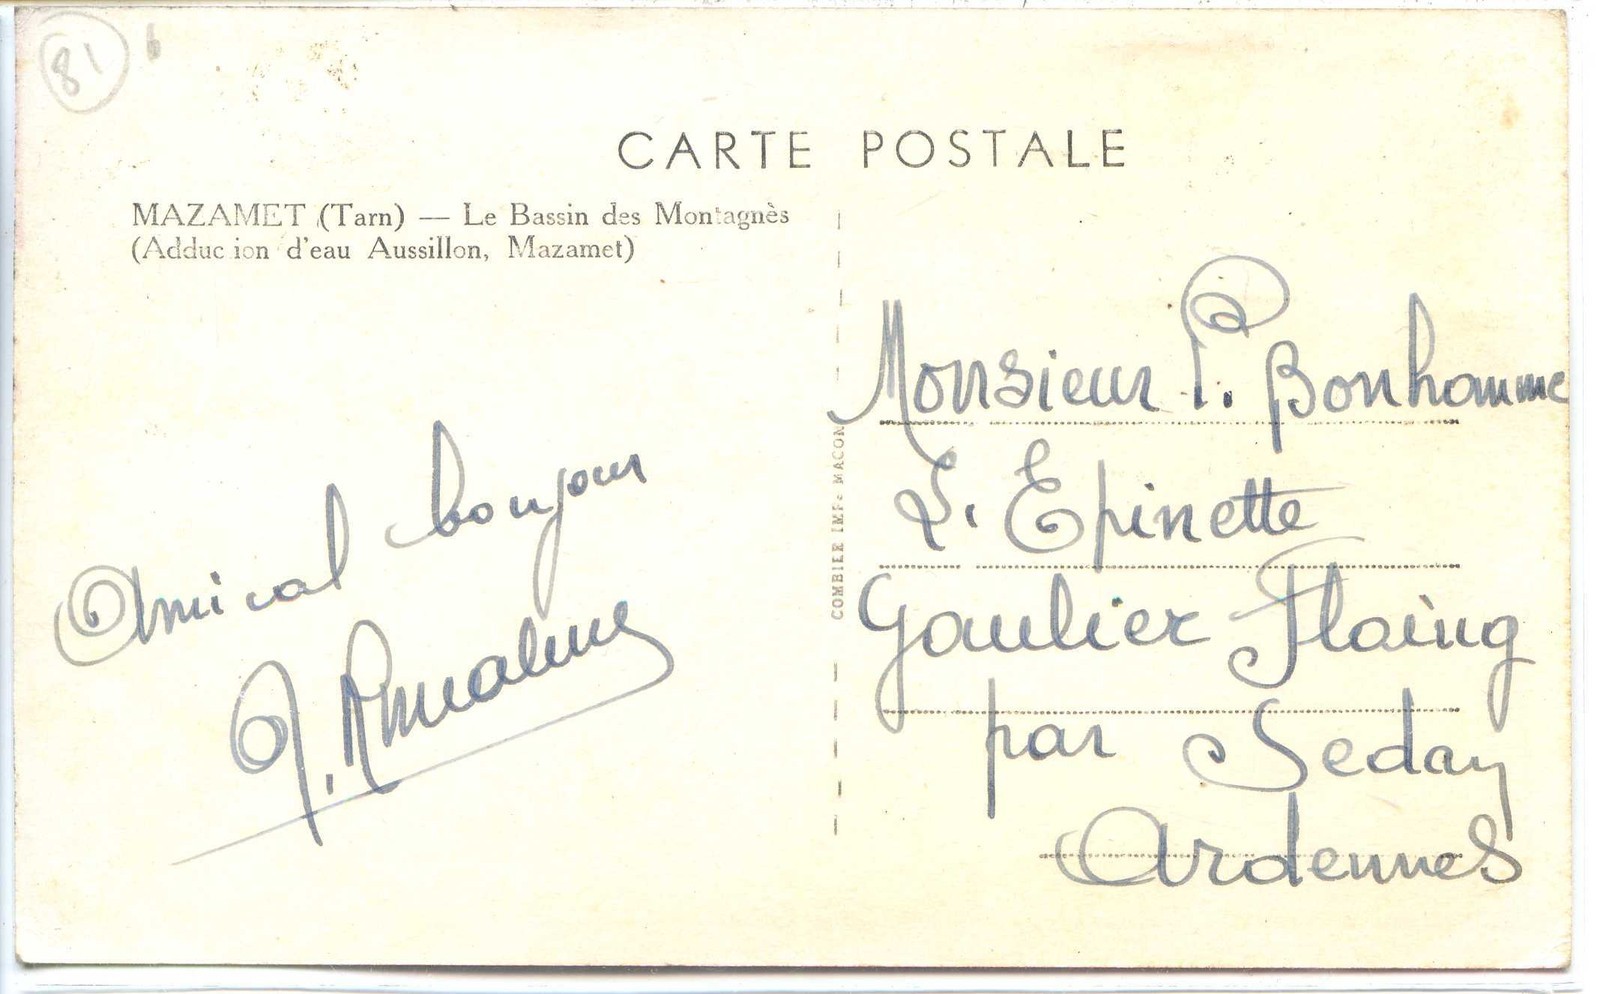 81 6
CARTE POSTALE
MAZAMET (Tarn) — Le Bassin des Montagnès
(Adduc ion d'eau Aussillon, Mazamet)
COMBIER IMP. MACON
Amical bonjour
Monsieur P. Bonhomme
L. Epinette
Gaulier Flaing
par Sedan
Ardennes